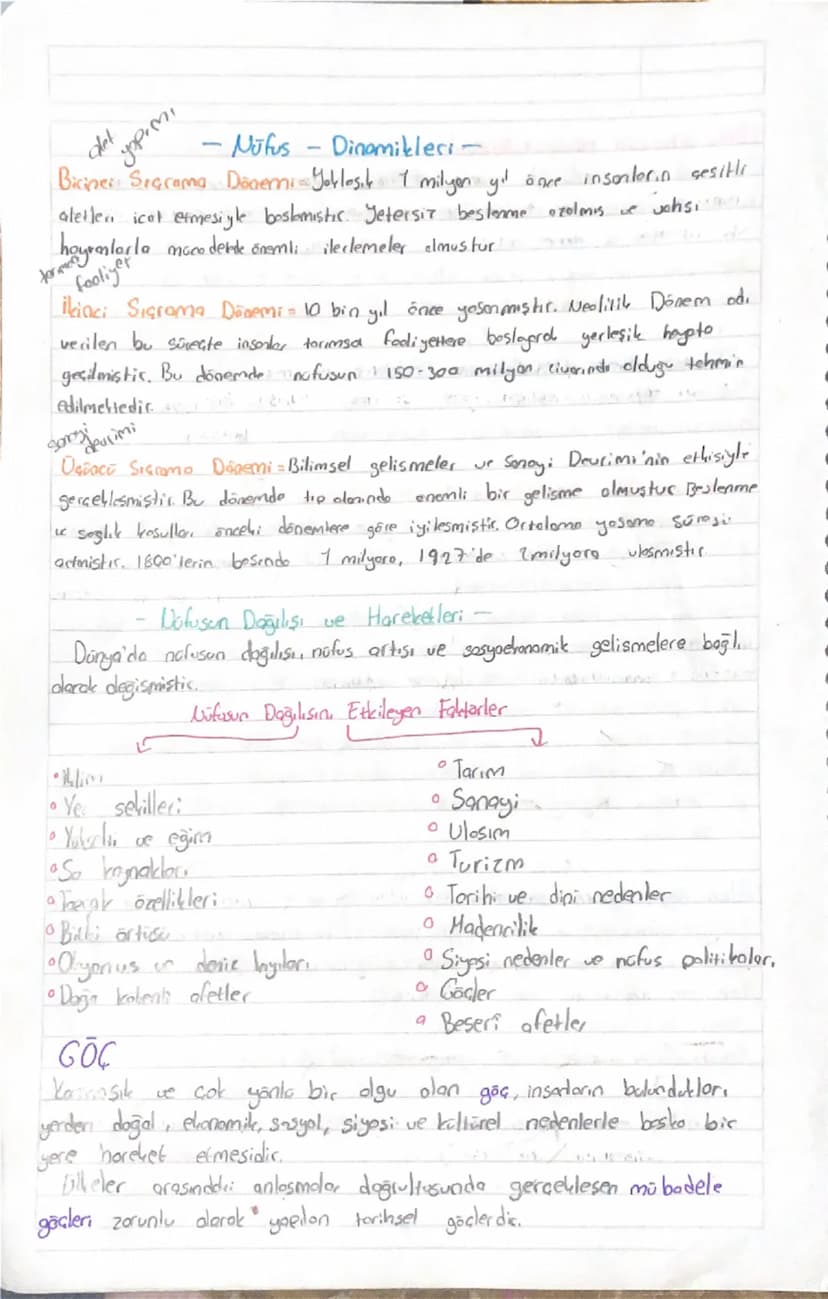 alet yapımı
- Nüfus - Dinamikleri -
Birinci Sıçrama Dönemi = Yaklaşık 1 milyon yıl önce insanların çeşitli
aletleri icat etmesiyle başlamıştır. Yetersiz beslenme azalmış ve vahşi
hayvanlarla mücadelede önemli ilerlemeler olmuştur
tarımsal faaliyet
İkinci Sıçrama Dönemi = 10 bin yıl önce yaşanmıştır. Neolitik Dönem adı
verilen bu süreçte insanlar tarımsal faaliyetlere başlayarak yerleşik hayata
geçilmiştir. Bu dönemde nüfusun 150-300 milyon civarında olduğu tahmin
edilmektedir.
sanayi devrimi
Üçüncü Sıçrama Dönemi = Bilimsel gelişmeler ve Sanayi Devrimi'nin etkisiyle
gerçekleşmiştir. Bu dönemde tıp alanında önemli bir gelişme olmuştur Beslenme
ve sağlık koşulları önceki dönemlere göre iyileşmiştir. Ortalama yaşama süresi
artmıştır. 1800'lerin başında 1 milyara, 1927'de 2milyara ulaşmıştır
- Nüfusun Dağılışı ve Hareketleri -
Dünya'da nüfusun dağılışı, nüfus artışı ve sosyoekonomik gelişmelere bağlı
olarak değişmiştir.
Nüfusun Dağılışını Etkileyen Faktörler
• İklim
• Yer şekilleri
• Yükselti ve eğim
• Su kaynakları
• Toprak özellikleri
• Bitki örtüsü
• Okyanus ve deniz kıyıları
• Doğa kökenli afetler
• Tarım
• Sanayi
• Ulaşım
• Turizm
• Tarihi ve dini nedenler
• Madencilik
• Siyasi nedenler ve nüfus politikaları
• Göçler
• Beşeri afetler
GÖÇ
Karmaşık ve çok yönlü bir olgu olan göç, insanların bulundukları
yerden doğal, ekonomik, sosyal, siyasi ve kültürel nedenlerle başka bir
yere hareket etmesidir.
Ülkeler arasındaki anlaşmalar doğrultusunda gerçekleşen mübadele
göçleri zorunlu olarak yapılan tarihsel göçlerdir.